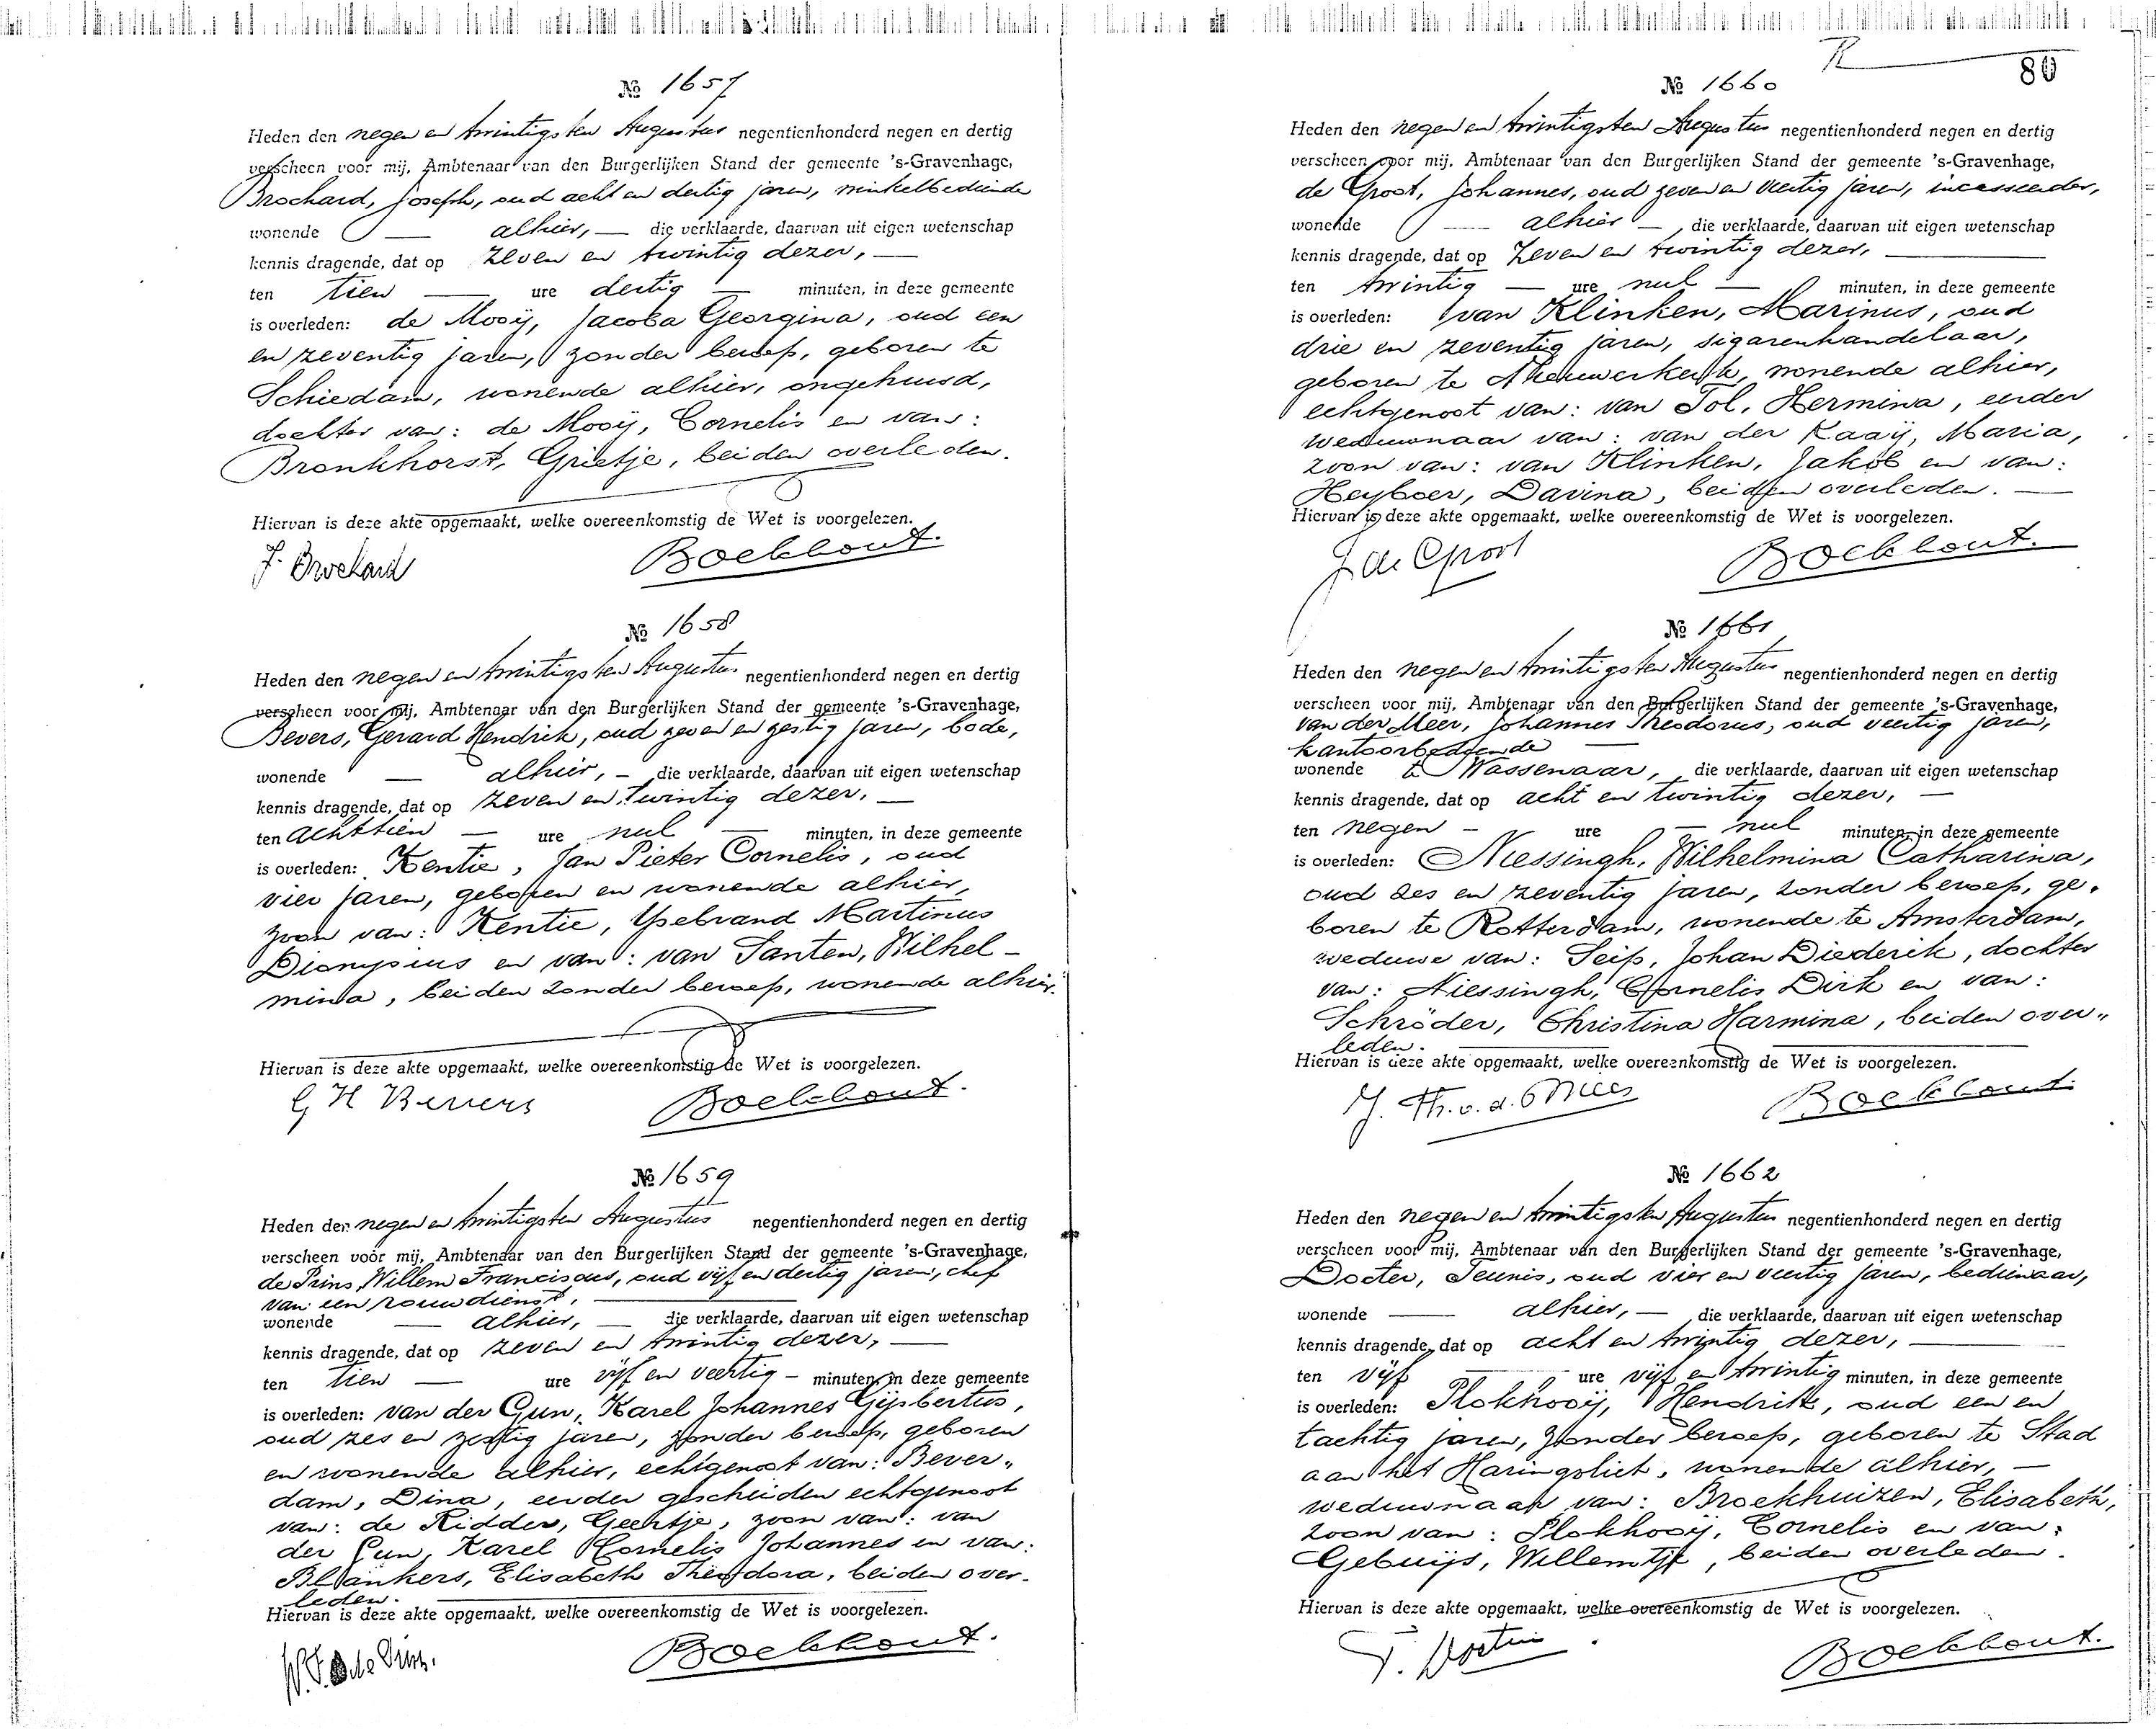 № 1657
Heden den negen en twintigsten Augustus negentienhonderd negen en dertig
verscheen voor mij, Ambtenaar van den Burgerlijken Stand der gemeente 's-Gravenhage,
Brochard, Joseph, oud acht en dertig jaren, winkelbediende
wonende — alhier, — die verklaarde, daarvan uit eigen wetenschap
kennis dragende, dat op zeven en twintig dezer, —
ten tien — ure dertig — minuten, in deze gemeente
is overleden: de Mooij, Jacoba Georgina, oud een
en zeventig jaren, zonder beroep, geboren te
Schiedam, wonende alhier, ongehuwd,
dochter van: de Mooij, Cornelis en van:
Bronkhorst, Grietje, beiden overleden.
Hiervan is deze akte opgemaakt, welke overeenkomstig de Wet is voorgelezen.
J. Brochard Boekhout.
№ 1658
Heden den negen en twintigsten Augustus negentienhonderd negen en dertig
verscheen voor mij, Ambtenaar van den Burgerlijken Stand der gemeente 's-Gravenhage,
Bevers, Gerard Hendrik, oud zeven en zestig jaren, bode,
wonende — alhier, — die verklaarde, daarvan uit eigen wetenschap
kennis dragende, dat op zeven en twintig dezer, —
ten achttien — ure nul — minuten, in deze gemeente
is overleden: Kentie, Jan Pieter Cornelis, oud
vier jaren, geboren en wonende alhier,
zoon van: Kentie, Ysebrand Martinus
Dionysius en van: van Santen, Wilhel-
mina, beiden zonder beroep, wonende alhier.
Hiervan is deze akte opgemaakt, welke overeenkomstig de Wet is voorgelezen.
G H Bevers Boekhout.
№ 1659
Heden den negen en twintigsten Augustus negentienhonderd negen en dertig
verscheen voor mij, Ambtenaar van den Burgerlijken Stand der gemeente 's-Gravenhage,
de Prins, Willem Franciscus, oud vijf en dertig jaren, chef
van een rouwdienst,
wonende — alhier, — die verklaarde, daarvan uit eigen wetenschap
kennis dragende, dat op zeven en twintig dezer, —
ten tien — ure vijf en veertig — minuten, in deze gemeente
is overleden: van der Gun, Karel Johannes Gijsbertus,
oud zes en zestig jaren, zonder beroep, geboren
en wonende alhier, echtgenoot van: Bever„
dam, Dina, eerder gescheiden echtgenoot
van: de Ridder, Geertje, zoon van: van
der Gun, Karel Cornelis Johannes en van:
Blankers, Elisabeth Theodora, beiden over-
leden.
Hiervan is deze akte opgemaakt, welke overeenkomstig de Wet is voorgelezen.
W. F. de Prins. Boekhout.
80
№ 1660
Heden den negen en twintigsten Augustus negentienhonderd negen en dertig
verscheen voor mij, Ambtenaar van den Burgerlijken Stand der gemeente 's-Gravenhage,
de Groot, Johannes, oud zeven en veertig jaren, incasseerder,
wonende — alhier —, die verklaarde, daarvan uit eigen wetenschap
kennis dragende, dat op zeven en twintig dezer, —
ten twintig — ure nul — minuten, in deze gemeente
is overleden: van Klinken, Marinus, oud
drie en zeventig jaren, sigarenhandelaar,
geboren te Nieuwerkerk, wonende alhier,
echtgenoot van: van Tol, Hermina, eerder
weduwnaar van: van der Kaaij, Maria,
zoon van: van Klinken, Jakob en van:
Heyboer, Davina, beiden overleden. —
Hiervan is deze akte opgemaakt, welke overeenkomstig de Wet is voorgelezen.
J de Groot Boekhout.
№ 1661
Heden den negen en twintigsten Augustus negentienhonderd negen en dertig
verscheen voor mij, Ambtenaar van den Burgerlijken Stand der gemeente 's-Gravenhage,
van der Meer, Johannes Theodorus, oud veertig jaren,
kantoorbediende —
wonende te Wassenaar, die verklaarde, daarvan uit eigen wetenschap
kennis dragende, dat op acht en twintig dezer, —
ten negen — ure — nul minuten, in deze gemeente
is overleden: Niessingh, Wilhelmina Catharina,
oud zes en zeventig jaren, zonder beroep, ge„
boren te Rotterdam, wonende te Amsterdam,
weduwe van: Seip, Johan Diederik, dochter
van: Niessingh, Cornelis Dirk en van:
Schröder, Christina Harmina, beiden over„
leden.
Hiervan is deze akte opgemaakt, welke overeenkomstig de Wet is voorgelezen.
J. Th. v. d. Meer Boekhout.
№ 1662
Heden den negen en twintigsten Augustus negentienhonderd negen en dertig
verscheen voor mij, Ambtenaar van den Burgerlijken Stand der gemeente 's-Gravenhage,
Docter, Teunis, oud vier en veertig jaren, bedienaar,
wonende — alhier, — die verklaarde, daarvan uit eigen wetenschap
kennis dragende, dat op acht en twintig dezer, —
ten vijf — ure vijf en twintig minuten, in deze gemeente
is overleden: Plokhooij, Hendrik, oud een en
tachtig jaren, zonder beroep, geboren te Stad
aan het Haringvliet, wonende alhier, —
weduwnaar van: Broekhuizen, Elisabeth,
zoon van: Plokhooij, Cornelis en van:
Gebuijs, Willemtje, beiden overleden.
Hiervan is deze akte opgemaakt, welke overeenkomstig de Wet is voorgelezen.
T. Docter Boekhout.